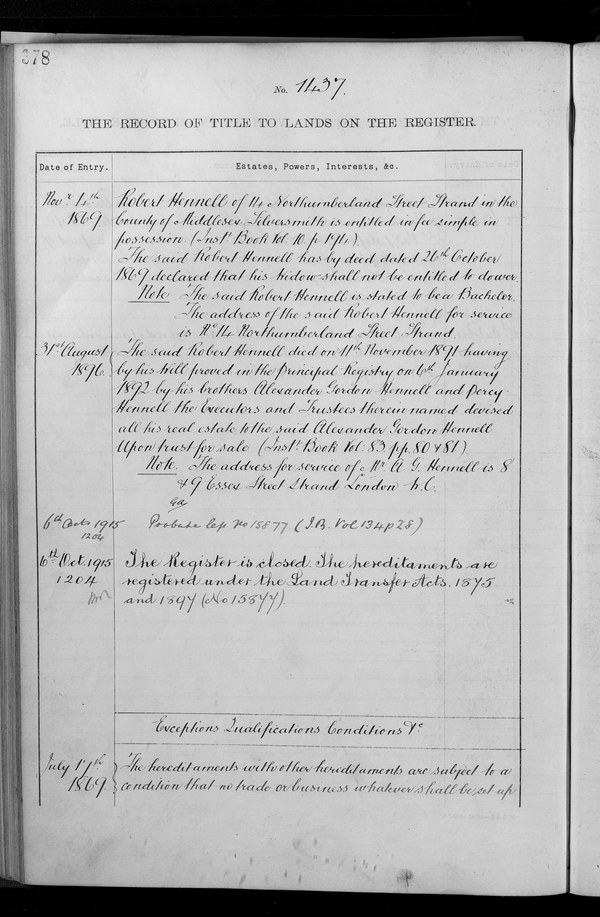 378
No. 1437.
THE RECORD OF TITLE TO LANDS ON THE REGISTER.
Date of Entry.
Estates, Powers, Interests, &c.
Novr 4th
1869
Robert Hennell of 14 Northumberland Street Strand in the
County of Middlesex Silversmith is entitled in fee simple in
possession (Instt Book Vol. 10. p. 194)
The said Robert Hennell has by deed dated 26th October
1869 declared that his Widow shall not be entitled to dower.
Note The said Robert Hennell is stated to be a Bachelor.
The address of the said Robert Hennell for service
is No 14 Northumberland Street Strand.
31st August
1896.
The said Robert Hennell died on 11th November 1891 having
by his Will proved in the Principal Registry on 6th January
1892 by his brothers Alexander Gordon Hennell and Percy
Hennell the Executors and Trustees therein named devised
all his real estate to the said Alexander Gordon Hennell
Upon trust for sale (Instt Book Vol. 83 p.p. 80 & 81)
Note. The address for service of Mr A. G. Hennell is 8
& 9 Essex Street Strand London W.C.
6th Octr 1915
1204
Probate No 15877. (I.B. Vol 134 p 28)
6th Oct. 1915
1204
The Register is closed. The hereditaments are
registered under the Land Transfer Acts. 1875
and 1897 (No 15877).
Exceptions Qualifications Conditions &c
July 17th
1869
The hereditaments with other hereditaments are subject to a
condition that no trade or business whatever shall be set up